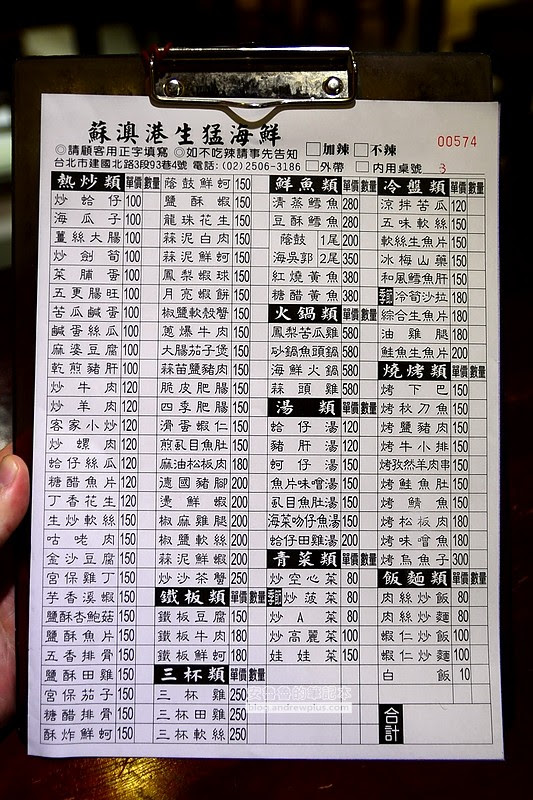 蘇澳港生猛海鮮
◎請顧客用正字填寫 ◎如不吃辣請事先告知 □加辣 □不辣
00574
台北市建國北路3段93巷4號 電話:(02)2506-3186 □外帶 □內用桌號 3
熱炒類 單價 數量
炒蛤仔 100
海瓜子 100
薑絲大腸 100
炒劍筍 100
菜脯蛋 100
五更腸旺 100
苦瓜鹹蛋 100
鹹蛋絲瓜 100
麻婆豆腐 100
乾煎豬肝 100
炒牛肉 120
炒羊肉 120
客家小炒 120
炒螺肉 120
蛤仔絲瓜 120
糖醋魚片 120
丁香花生 120
生炒軟絲 150
咕老肉 150
金沙豆腐 150
宮保雞丁 150
芋香溪蝦 150
鹽酥杏鮑菇 150
鹽酥魚片 150
五香排骨 150
鹽酥田雞 150
宮保茄子 150
糖醋排骨 150
酥炸鮮蚵 150
蔭鼓鮮蚵 150
鹽酥蝦 150
龍珠花生 150
蒜泥白肉 150
蒜泥鮮蚵 150
鳳梨蝦球 150
月亮蝦餅 150
椒鹽軟殼蟹 150
蔥爆牛肉 150
大腸茄子煲 150
蒜苗鹽豬肉 150
脆皮肥腸 150
四季肥腸 150
滑蛋蝦仁 150
煎虱目魚肚 150
麻油松板肉 180
德國豬腳 200
燙鮮蝦 200
椒麻雞腿 200
椒鹽軟絲 200
蒜泥鮮蝦 200
炒沙茶蟹 250
鐵板類 單價 數量
鐵板豆腐 150
鐵板牛肉 180
鐵板鮮蚵 180
三杯類 單價 數量
三杯雞 250
三杯田雞 250
三杯軟絲 250
鮮魚類 單價 數量
清蒸鱈魚 280
豆酥鱈魚 280
蔭鼓 1尾 200
海吳郭 2尾 350
紅燒黃魚 380
糖醋黃魚 380
火鍋類 單價 數量
鳳梨苦瓜雞 580
砂鍋魚頭鍋 580
海鮮火鍋 580
蒜頭雞 580
湯類 單價 數量
蛤仔湯 120
豬肝湯 120
蚵仔湯 150
魚片味噌湯 150
虱目魚肚湯 150
海菜吻仔魚湯 150
蛤仔田雞湯 200
青菜類 單價 數量
炒空心菜 80
季節 炒菠菜 80
炒A菜 80
炒高麗菜 100
娃娃菜 150
冷盤類 單價 數量
涼拌苦瓜 120
五味軟絲 150
軟絲生魚片 150
冰梅山藥 150
和風鱈魚肝 150
季節 冷筍沙拉 180
綜合生魚片 180
油雞腿 180
鮭魚生魚片 200
燒烤類 單價 數量
烤下巴 150
烤秋刀魚 150
烤鹽豬肉 150
烤牛小排 150
烤孜然羊肉串 150
烤鮭魚肚 150
烤鯖魚 150
烤松板肉 180
烤味噌魚 180
烤烏魚子 300
飯麵類 單價 數量
肉絲炒飯 80
肉絲炒麵 80
蝦仁炒飯 100
蝦仁炒麵 100
白飯 10
合計
blog.andrewplus.com